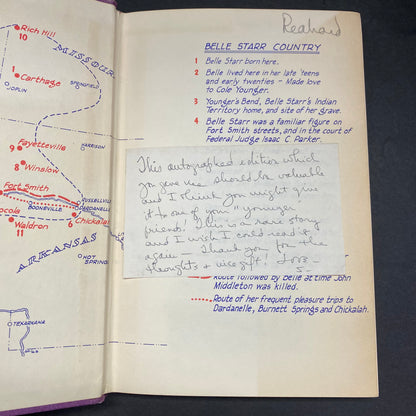 Rich Hill
10
MISSOURI
1
Carthage
JOPLIN
SPRINGFIELD
HARRISON
Fayetteville
9
8 Winslow
Fort Smith
RUSSELLVILLE
BOONEVILLE
DARDANELLE
6 Chickalah
Waldron
11
ARKANSAS
HOT SPRINGS
TEXARKANA
BELLE STARR COUNTRY
1 Belle Starr born here.
2 Belle lived here in her late teens
and early twenties - Made love
to Cole Younger.
3 Younger's Bend, Belle Starr's Indian
Territory home, and site of her grave.
4 Belle Starr was a familiar figure on
Fort Smith streets, and in the court of
Federal Judge Isaac C. Parker.
This autographed edition which
you gave me should be valuable
and I think you might give
it to one of your "younger
friends. This is a rare story
and I wish I could read it
again - Thank you for the
thoughts + nice gift! Love -
S -
Route followed by Belle at time John
Middleton was killed.
Route of her frequent pleasure trips to
Dardanelle, Burnett Springs and Chickalah.